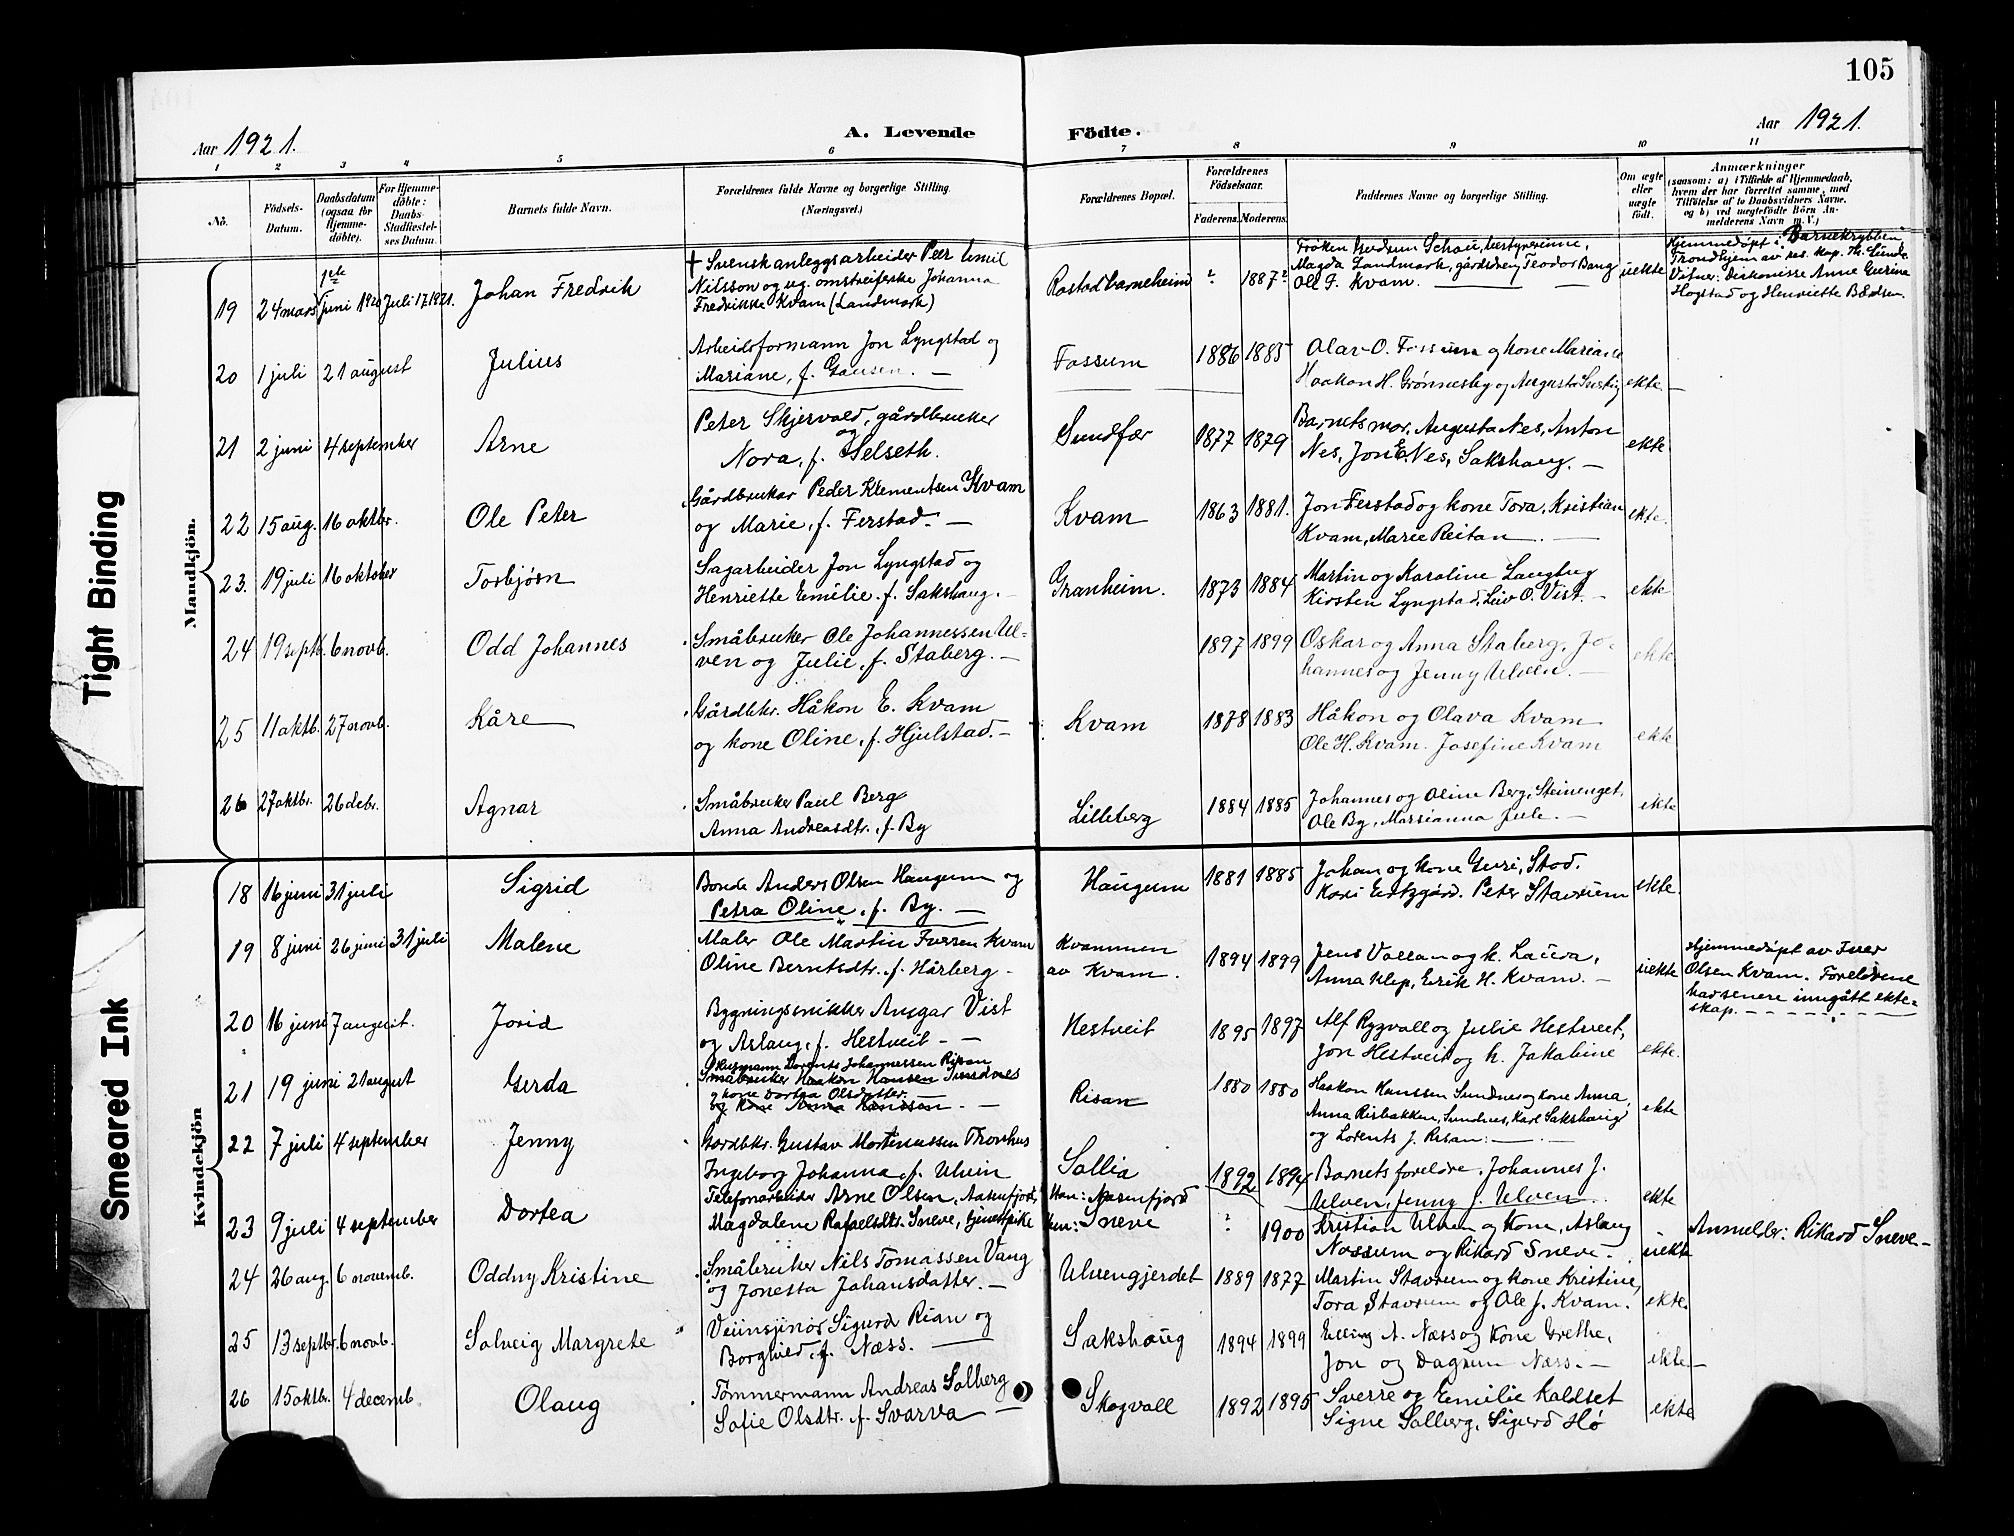 105
Aar 1921.
A. Levende
Födte.
Aar 1921.
1 2 3 4 5 6 7 8 9 10 11
No.
Födsels-Datum.
Daabsdatum (ogsaa for Hjemmedöbte).
For Hjemmedöbte: Daabs-Stadfæstelses Datum.
Barnets fulde Navn.
Forældrenes fulde Navne og borgerlige Stilling.
(Næringsvei.)
Forældrenes Bopæl.
Forældrenes Födselsaar.
Faderens. Moderens.
Faddernes Navne og borgerlige Stilling.
Om ægte eller uægte födt.
Anmærkninger
(saasom: a) i Tilfælde af Hjemmedaab, hvem der har forrettet samme, med Tilföielse af to Daabsvidners Navne, og b) ved uægtefödte Börn Anmelderens Navn m. V.)
Mandkjön.
19 24 mars 1ste juni 1920 Juli 17. 1921. Johan Fredrik
† Svensk anleggsarbeider Peer Emil
Nilsson og ug. omstreiferske Johanna
Fredrikke Kvam (Landmark)
Rostad barneheim ? 1887?
Frøken Schou, bestyrerinne,
Magda Landmark, gårdsdreng Teodor Bang
Ole F. Kvam.
uekte
Hjemmedøpt i Barnekrybben
Trondhjem av res. kap. Th. Lunde
Vitner: Diakonisse Anne Gurine
Hogstad og Henriette
20 1 juli 21 august Julius
Arbeidsformann Jon Lyngstad og
Mariane, f. Gausen. —
Fossum 1886 1885
Olav O. Fossum og kone Mariane
Haakon H. Grønnesby og Augusta
ekte
21 2 juni 4 september Arne
Peter Skjervold, gårdbruker
og
Nora, f. Selseth.
Sundfær 1877 1879
Barnets mor, Augusta Nes, Anton
Nes, Jon E. Nes, Sakshaug. —
ekte
22 15 aug. 16 oktbr. Ole Peter
Gårdbruker Peder Klementsen Kvam
og Marie, f. Ferstad. —
Kvam 1863 1881.
Jon Ferstad og kone Tora, Kristian
Kvam, Marie Reitan. —
ekte.
23. 19 juli 16 oktober Torbjørn
Sagarbeider Jon Lyngstad og
Henriette Emilie. f. Sakshaug. —
Granheim. 1873 1884
Martin og Karoline Langbug
Kirsten Lyngstad, Liv O. Vist. —
ekte
24 19 septb. 6 novb. Odd Johannes
Småbruker Ole Johannessen Ul-
ven og Julie, f. Staberg. —
1897 1899
Oskar og Anna Staberg, Jo-
hannes og Jenny Ulven. —
ekte
25 11 oktb. 27 novb. Kåre
Gårdbkr. Håkon E. Kvam
og kone Oline, f. Hjulstad. —
Kvam 1878 1883
Håkon og Olava Kvam
Ole H. Kvam. Josefine Kvam
ekte
26 27 oktbr. 26 debr. Agnar
Småbruker Paul Berg
Anna Andreasdtr., f. By
Lilleberg 1884 1885
Johannes og Oline Berg, Steinenget,
Ole By, Marsianna Jule. —
ekte
Kvindekjön
18 16 juni 31 juli Sigrid
Bonde Anders Olsen Haugum og
Petra Oline, f. By. —
Haugum 1881 1885
Johan og kone Guri, Stod.
Kari Ertzgård. Peter Stavrum
ekte
19 8 juni 26 juni 31 juli Malene
Maler Ole Martin Iversen Kvam
Oline Berntsdtr. f. Hårberg —
Kvammen
av Kvam. 1894 1899
Jens Vollan og k. Laura,
Anna Klep, Eirik H. Kvam. —
uekte
Hjemmedøpt av Iver
Olsen Kvam. Foreldrene
har senere inngått ekte-
skap.
20 16 juni 7 august. Jorid
Bygningssnikker Ansgar Vist
og Aslaug, f. Hestveit —
Hestveit 1895 1897
Alf Rygvoll og Julie Hestveit,
Jon Hestveit og k. Jakobine
ekte.
21 19 juni 21 august Gerda
Husmann Lorents Johannessen Risan
Småbruker Haakon Hansen Sundnes
og kone Dortea Olsdatter.
og kone Anna Hanssen. —
Risan 1880 1880
Haakon Hanssen Sundnes og kone Anna,
Anna Risbakken, Sundnes, Karl Sakshaug
og Lorents J. Risan. —
ekte
22 7 juli 4 september Jenny
Gårdbkr. Gustav Mortinussen Tronhus
Ingeborg Johanna, f. Ulvin
Sollia 1892 1894
Barnets foreldre, Johannes J.
Ulven, Jenny J. Ulven.
ekte
23 9 juli 4 september Dortea
Telefonarbeider Arne Olsen, Aasenfjord,
Magdalene Rafaelsdtr. Sneve, tjenestpike
Han: Aasenfjord
Hun: Sneve ? 1900
Kristian Ulven og kone, Aslaug
Nossum og Rikard Sneve.
uekte
Anmelder: Rikard Sneve —
24 26 aug. 6 novemb. Oddny Kristine
Småbruker Nils Tomassen Vang
og Jonetta Johansdatter. —
Ulvengjerdet 1889 1877
Martin Stavrum og kone Kristine,
Tora Stavrum og Ole J. Kvam.
ekte.
25 13 septbr. 6 novb. Solveig Margrete
Veiinsjinør Sigurd Rian og
Borghild, f. Næss. —
Sakshaug 1894 1899
Elling A. Næss og kone Grethe,
Jon og Dagrun Næss. —
ekte. —
26 15 oktbr. 4 decemb. Olaug
Tømmermann Andreas Solberg
Sofie Olsdtr. f. Svarva —
Skogvoll 1892 1895
Sverre og Emilie Kaldset
Signe Solberg, Sigurd Hø
ekte
Tight Binding
Smeared Ink